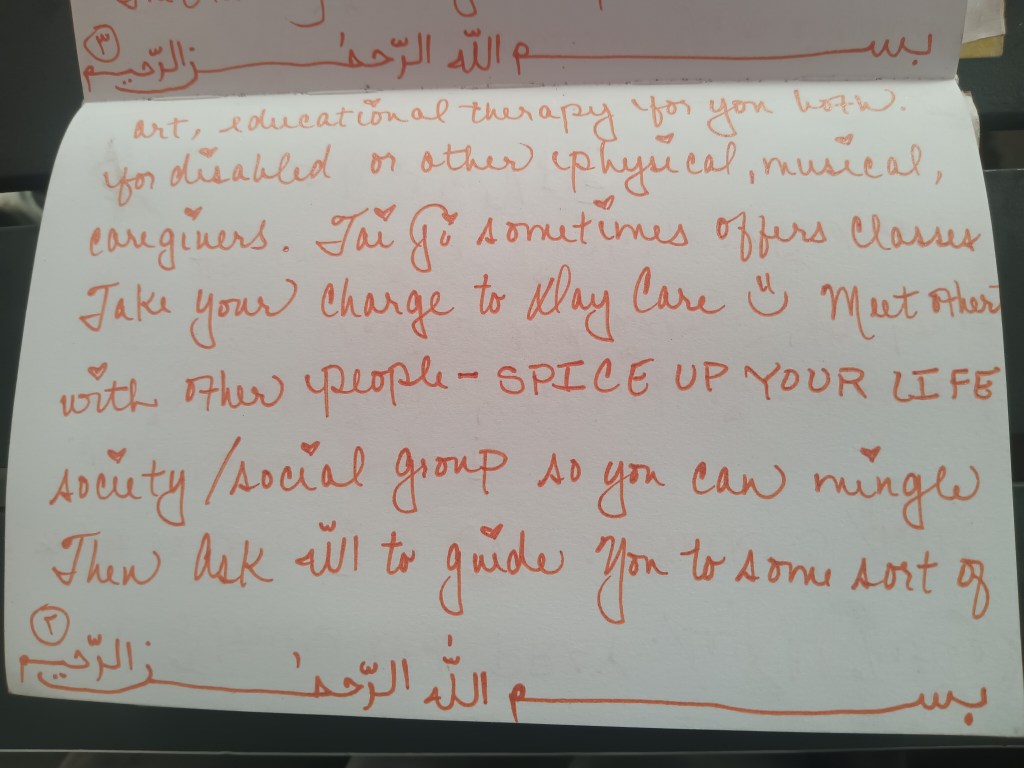 بسم الله الرّحمٰن الرّحيم ٢
Then Ask الله to guide You to some sort of
society/social group so you can mingle
with other people - SPICE UP YOUR LIFE
Take your charge to Day Care Meet other
caregivers. Tai Gi sometimes offers classes
for disabled or other physical, musical,
art, educational therapy for you both.
بسم الله الرّحمٰن الرّحيم ٣